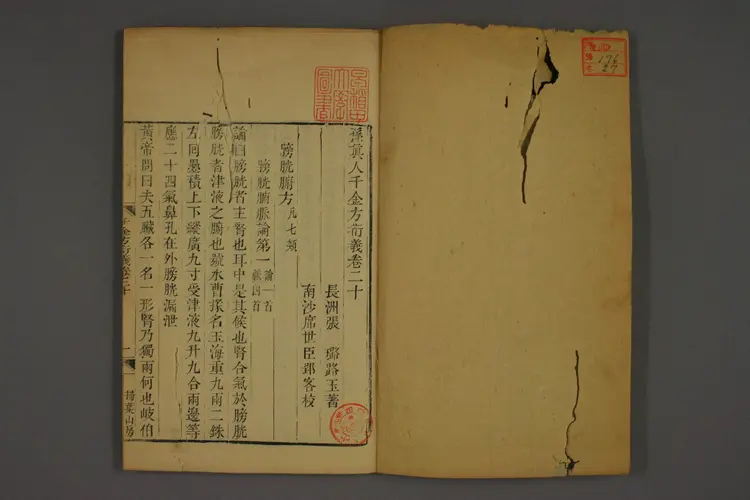 孫真人千金方衍義卷二十
長洲張 璐路玉著
南沙席世臣郢客校
膀胱腑方凡七類
膀胱腑脈論第一論一首
論曰膀胱者主腎也耳中是其候也腎合氣於膀胱
膀胱者津液之腑也號水曹掾名玉海重九兩二銖
左回疊積上下縱廣九寸受津液九升九合兩邊等
應二十四氣鼻孔在外膀胱漏泄
黃帝問曰夫五臟各一名一形腎乃獨兩何也岐伯
千金方衍義卷二十
一
掃葉山房